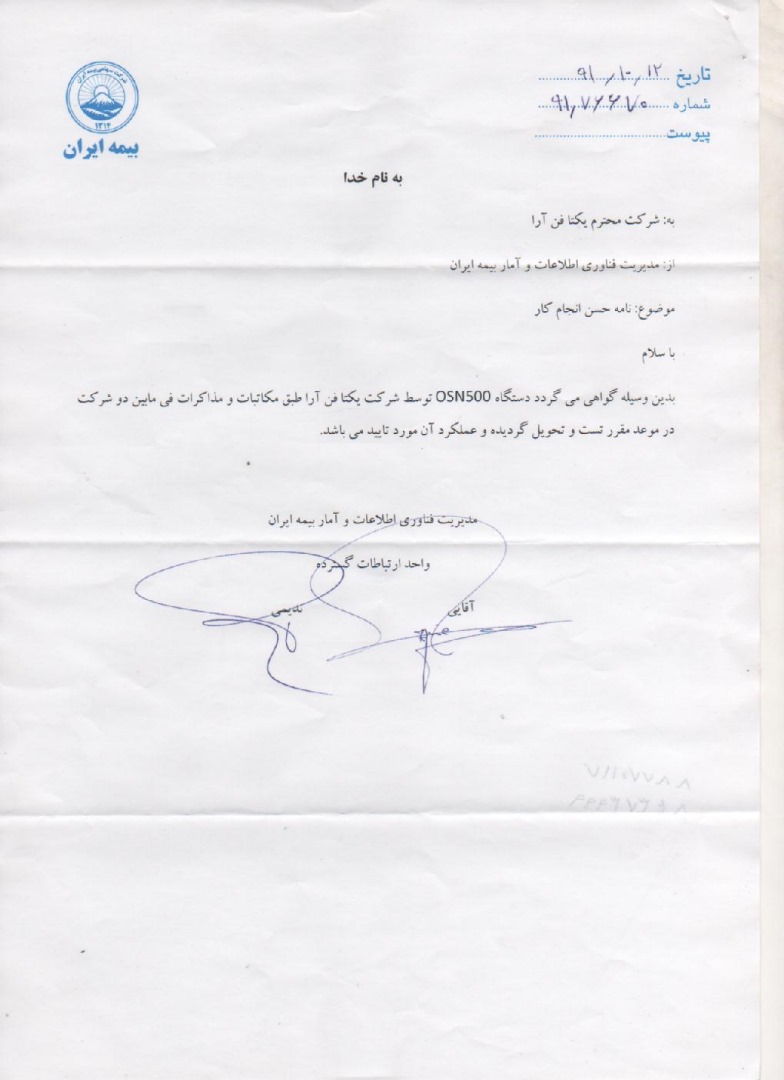 تاریخ ۹۱٫۱۰٫۱۲
شماره
پیوست
شرکت سهامی بیمه ایران
۱۳۱۴
بیمه ایران
به نام خدا
به: شرکت محترم یکتا فن آرا
از: مدیریت فناوری اطلاعات و آمار بیمه ایران
موضوع: نامه حسن انجام کار
با سلام
بدین وسیله گواهی می گردد دستگاه OSN500 توسط شرکت یکتا فن آرا طبق مکاتبات و مذاکرات فی مابین دو شرکت
در موعد مقرر تست و تحویل گردیده و عملکرد آن مورد تایید می باشد.
مدیریت فناوری اطلاعات و آمار بیمه ایران
واحد ارتباطات گسترده
آقایی ندیمی